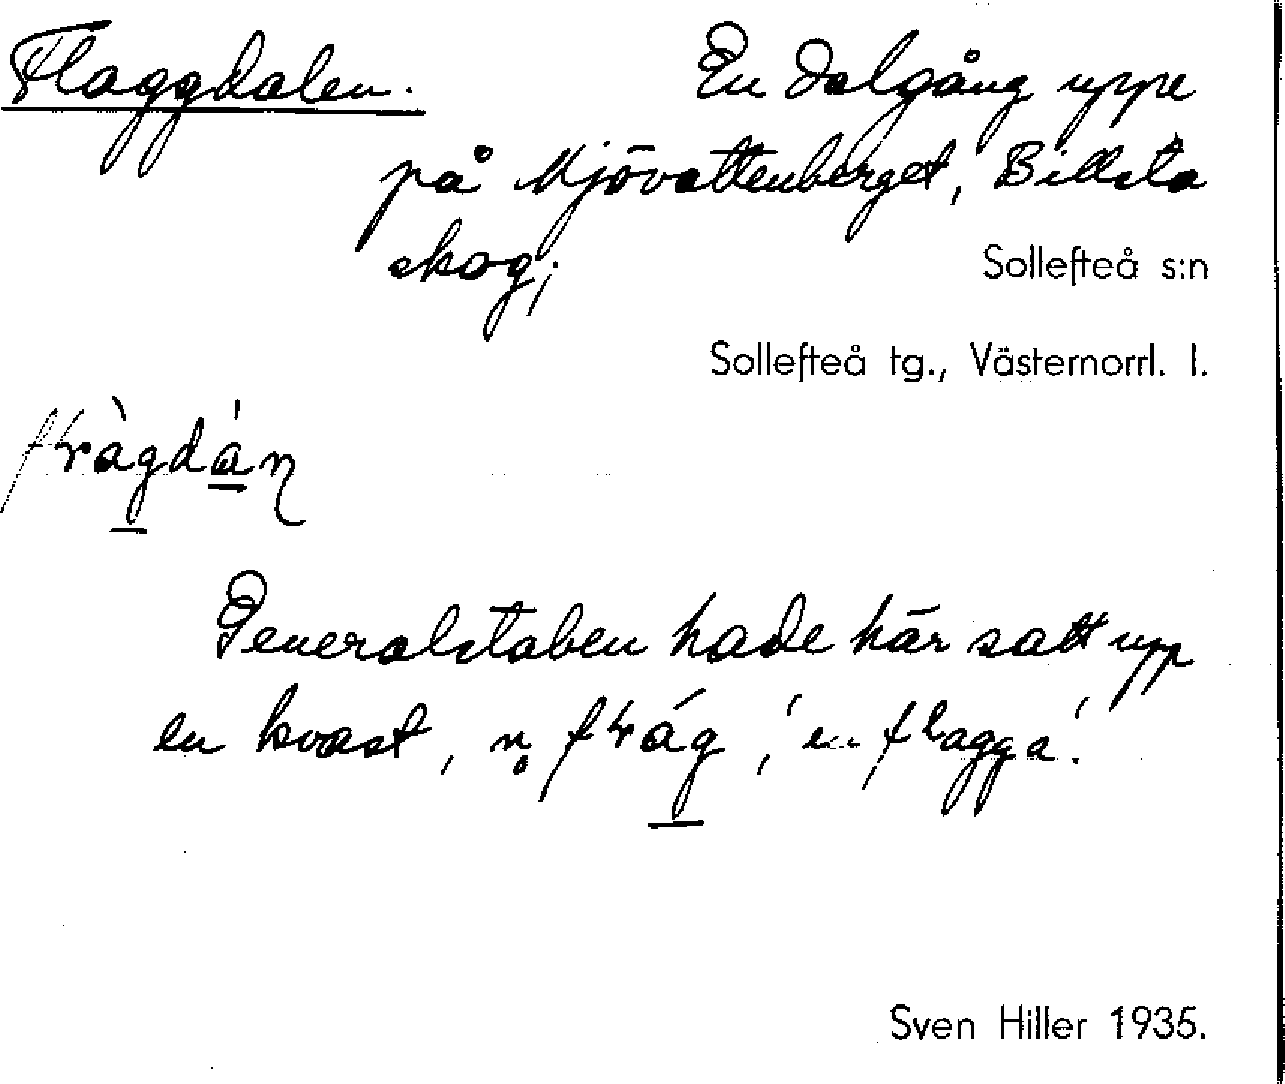 Flaggdalen. En dalgång uppe
på Mjövattenberget, Billsta
skog;
Sollefteå s:n
Sollefteå tg., Västernorrl. l.
Generalstaben hade här satt upp
en kvast, 'en flagga'.
Sven Hiller 1935.